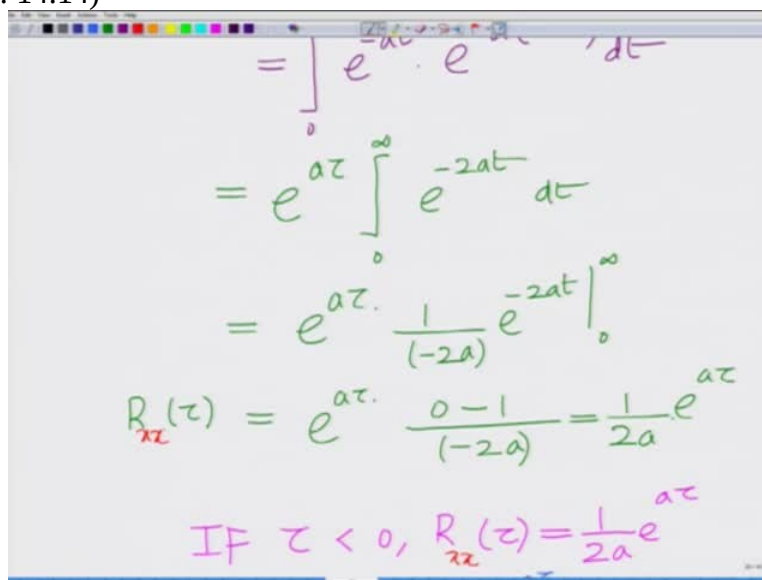 14:14)
= ∫₀ e^-at . e dt
= e^aτ ∫₀^∞ e^-2at dt
= e^aτ. 1/(-2a) e^-2at |₀^∞
R_xx(τ) = e^aτ. (0-1)/(-2a) = 1/2a e^aτ
IF τ < 0, R_xx(τ) = 1/2a e^aτ